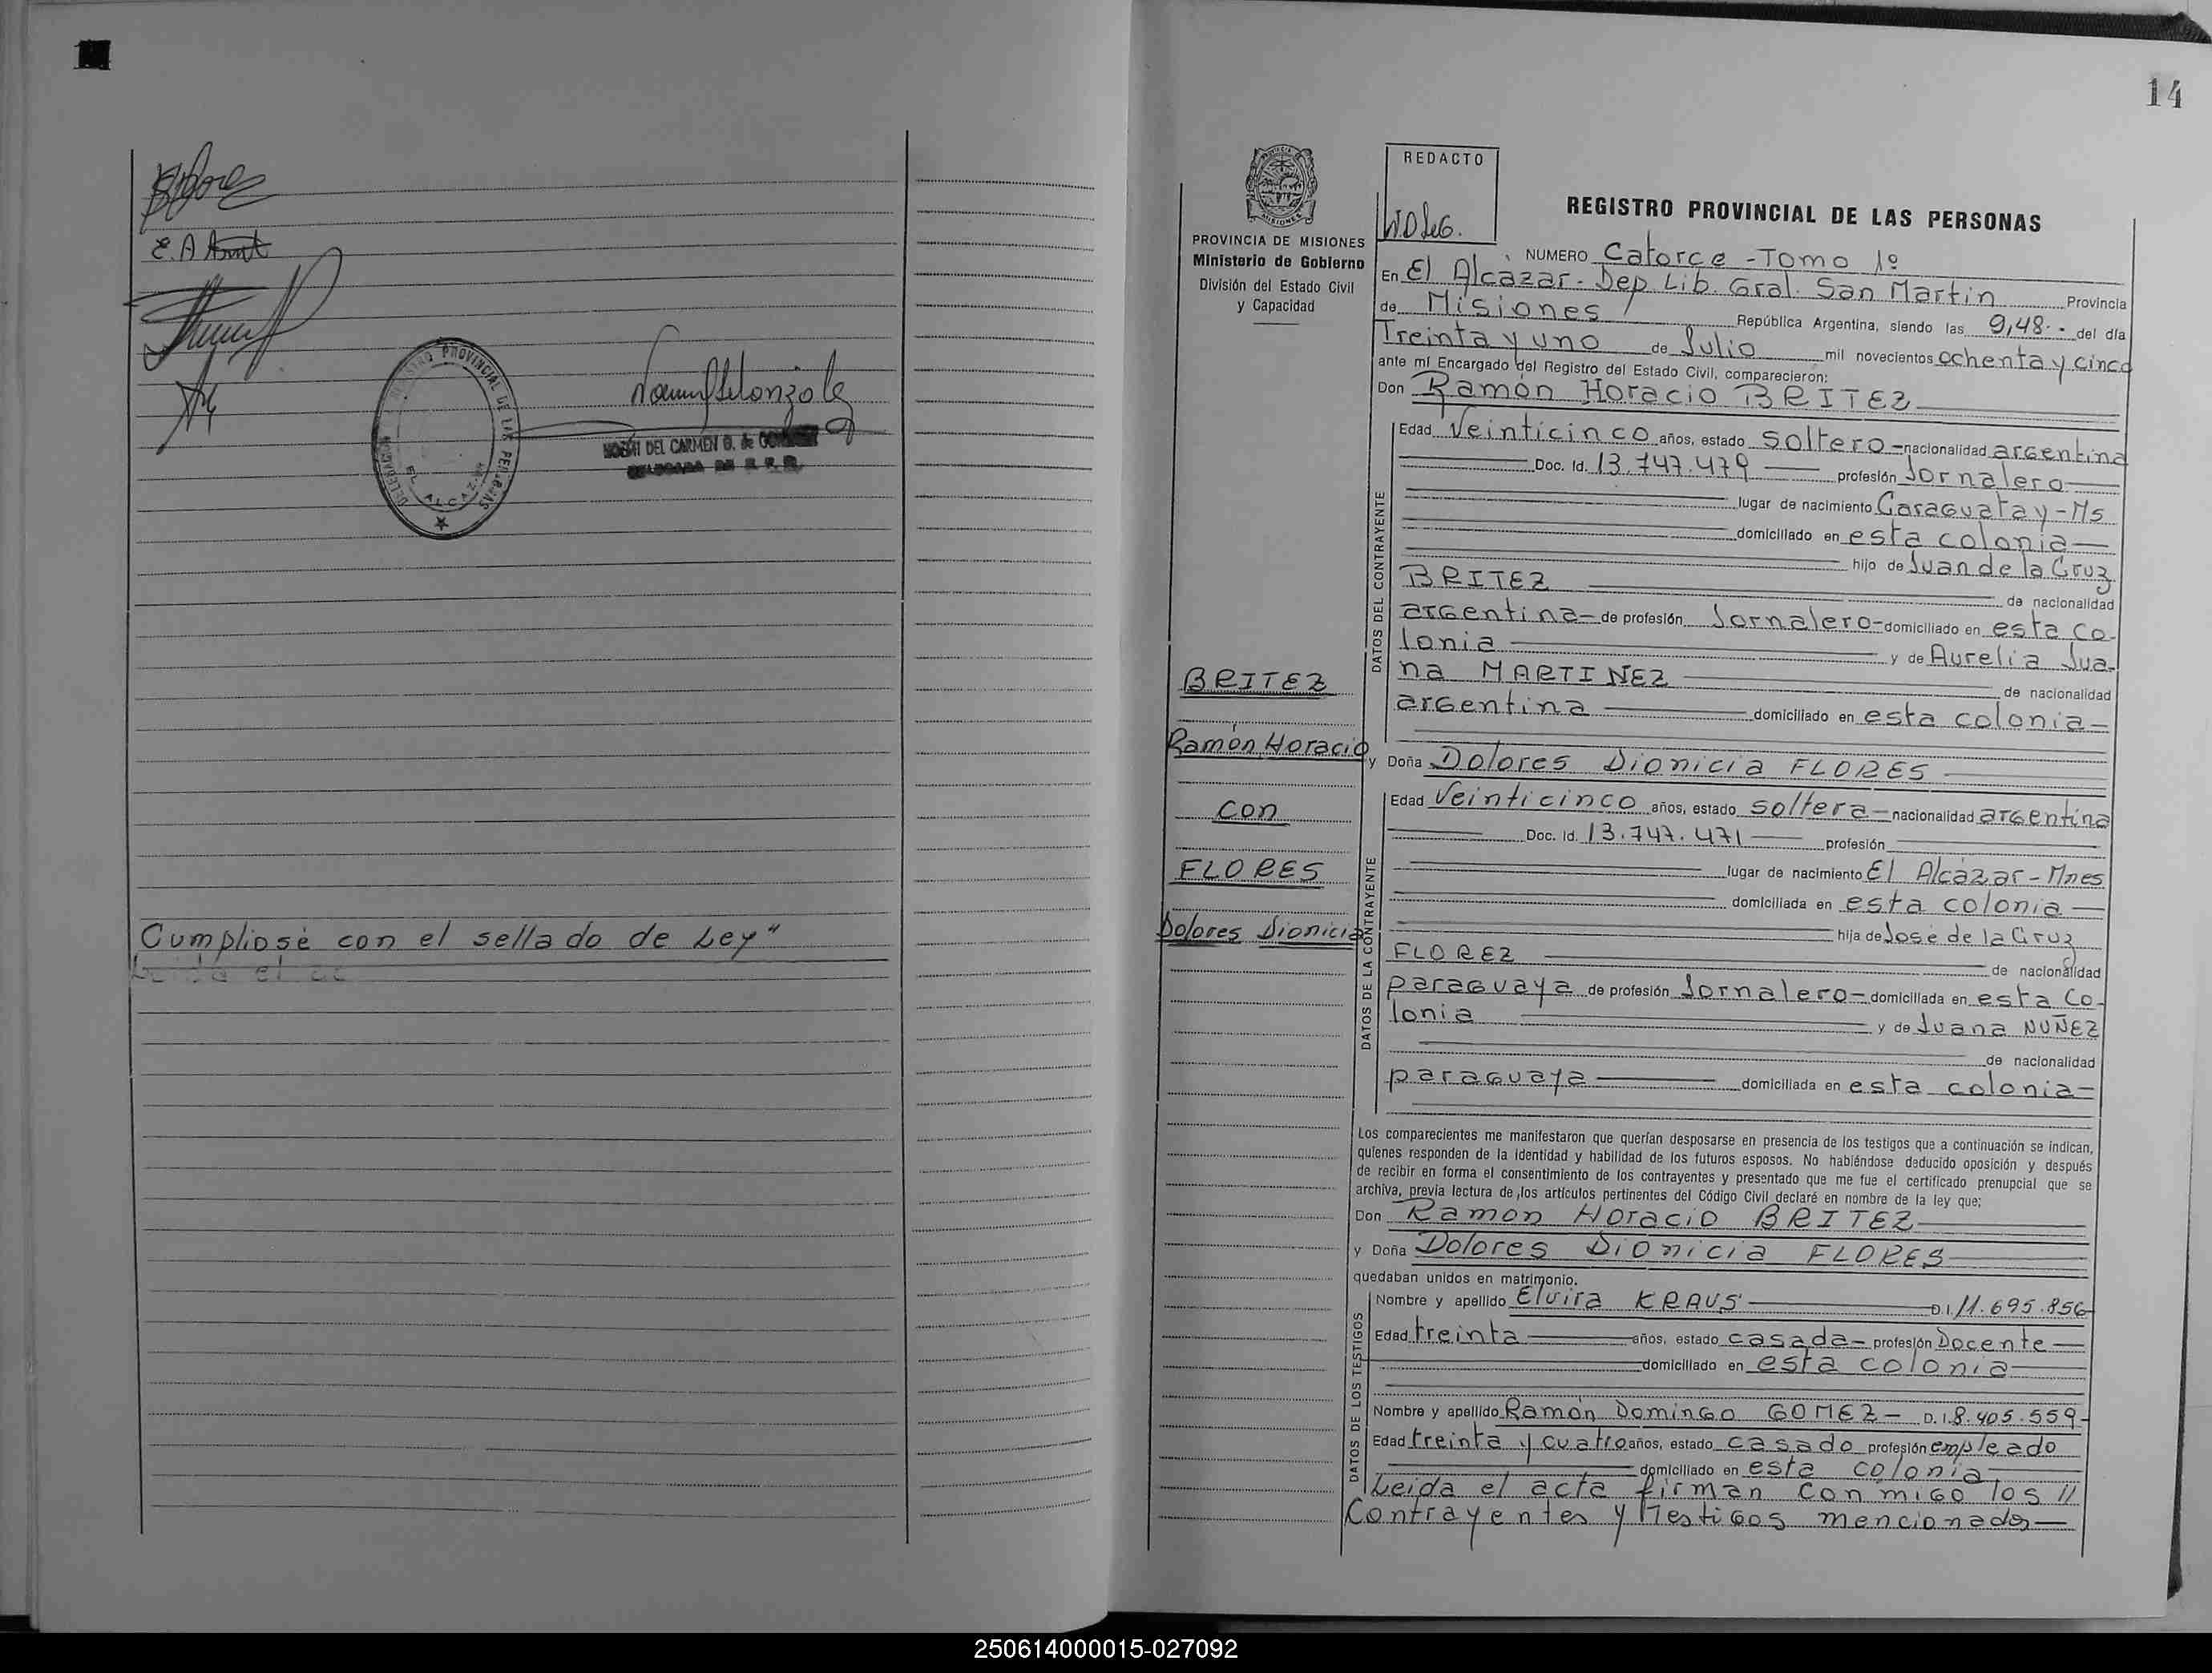 E. A
REGISTRO PROVINCIAL DE LAS PERSONAS
DELEGACION
EL ALCAZAR
NOEMI DEL CARMEN G. de
DELEGADA DE R. P. P.
Cumpliosé con el sellado de Ley"
14
REDACTO
PROVINCIA DE MISIONES
Ministerio de Gobierno
División del Estado Civil
y Capacidad
REGISTRO PROVINCIAL DE LAS PERSONAS
NUMERO Catorce - Tomo 1º
En El Alcazar - Dep Lib. Gral. San Martin Provincia
de Misiones República Argentina, siendo las 9,48.- del día
Treinta y uno de Julio mil novecientos ochenta y cinco
ante mí Encargado del Registro del Estado Civil, comparecieron:
Don Ramón Horacio BRITEZ
Edad Veinticinco años, estado soltero - nacionalidad argentina
Doc. Id. 13.747.479 profesión Jornalero
lugar de nacimiento Caraguatay - Ms
domiciliado en esta colonia
hijo de Juan de la Cruz
BRITEZ
de nacionalidad
argentina - de profesión Jornalero - domiciliado en esta co-
lonia y de Aurelia Jua-
na MARTINEZ
de nacionalidad
argentina domiciliado en esta colonia -
DATOS DEL CONTRAYENTE
BRITEZ
Ramón Horacio
con
FLORES
Dolores Dionicia
y Doña Dolores Dionicia FLORES
Edad Veinticinco años, estado soltera - nacionalidad argentina
Doc. Id. 13.747.471 profesión
lugar de nacimiento El Alcázar - Mnes
domiciliada en esta colonia
hija de José de la Cruz
FLOREZ
de nacionalidad
paraguaya de profesión Jornalero - domiciliada en esta co-
lonia y de Juana NUÑEZ
de nacionalidad
paraguaya domiciliada en esta colonia -
DATOS DE LA CONTRAYENTE
Los comparecientes me manifestaron que querían desposarse en presencia de los testigos que a continuación se indican,
quienes responden de la identidad y habilidad de los futuros esposos. No habiéndose deducido oposición y después
de recibir en forma el consentimiento de los contrayentes y presentado que me fue el certificado prenupcial que se
archiva, previa lectura de los artículos pertinentes del Código Civil declaré en nombre de la ley que;
Don Ramon Horacio BRITEZ
y Doña Dolores Dionicia FLORES
quedaban unidos en matrimonio.
Nombre y apellido Elvira KRAUS D.I. 11.695.856
Edad treinta años, estado casada - profesión Docente
domiciliado en esta colonia
Nombre y apellido Ramón Domingo GOMEZ - D.I. 8.405.559-
Edad treinta y cuatro años, estado casado profesión empleado
domiciliado en esta colonia
DATOS DE LOS TESTIGOS
Leida el acta firman conmigo los //
Contrayentes y Testigos mencionados
250614000015-027092